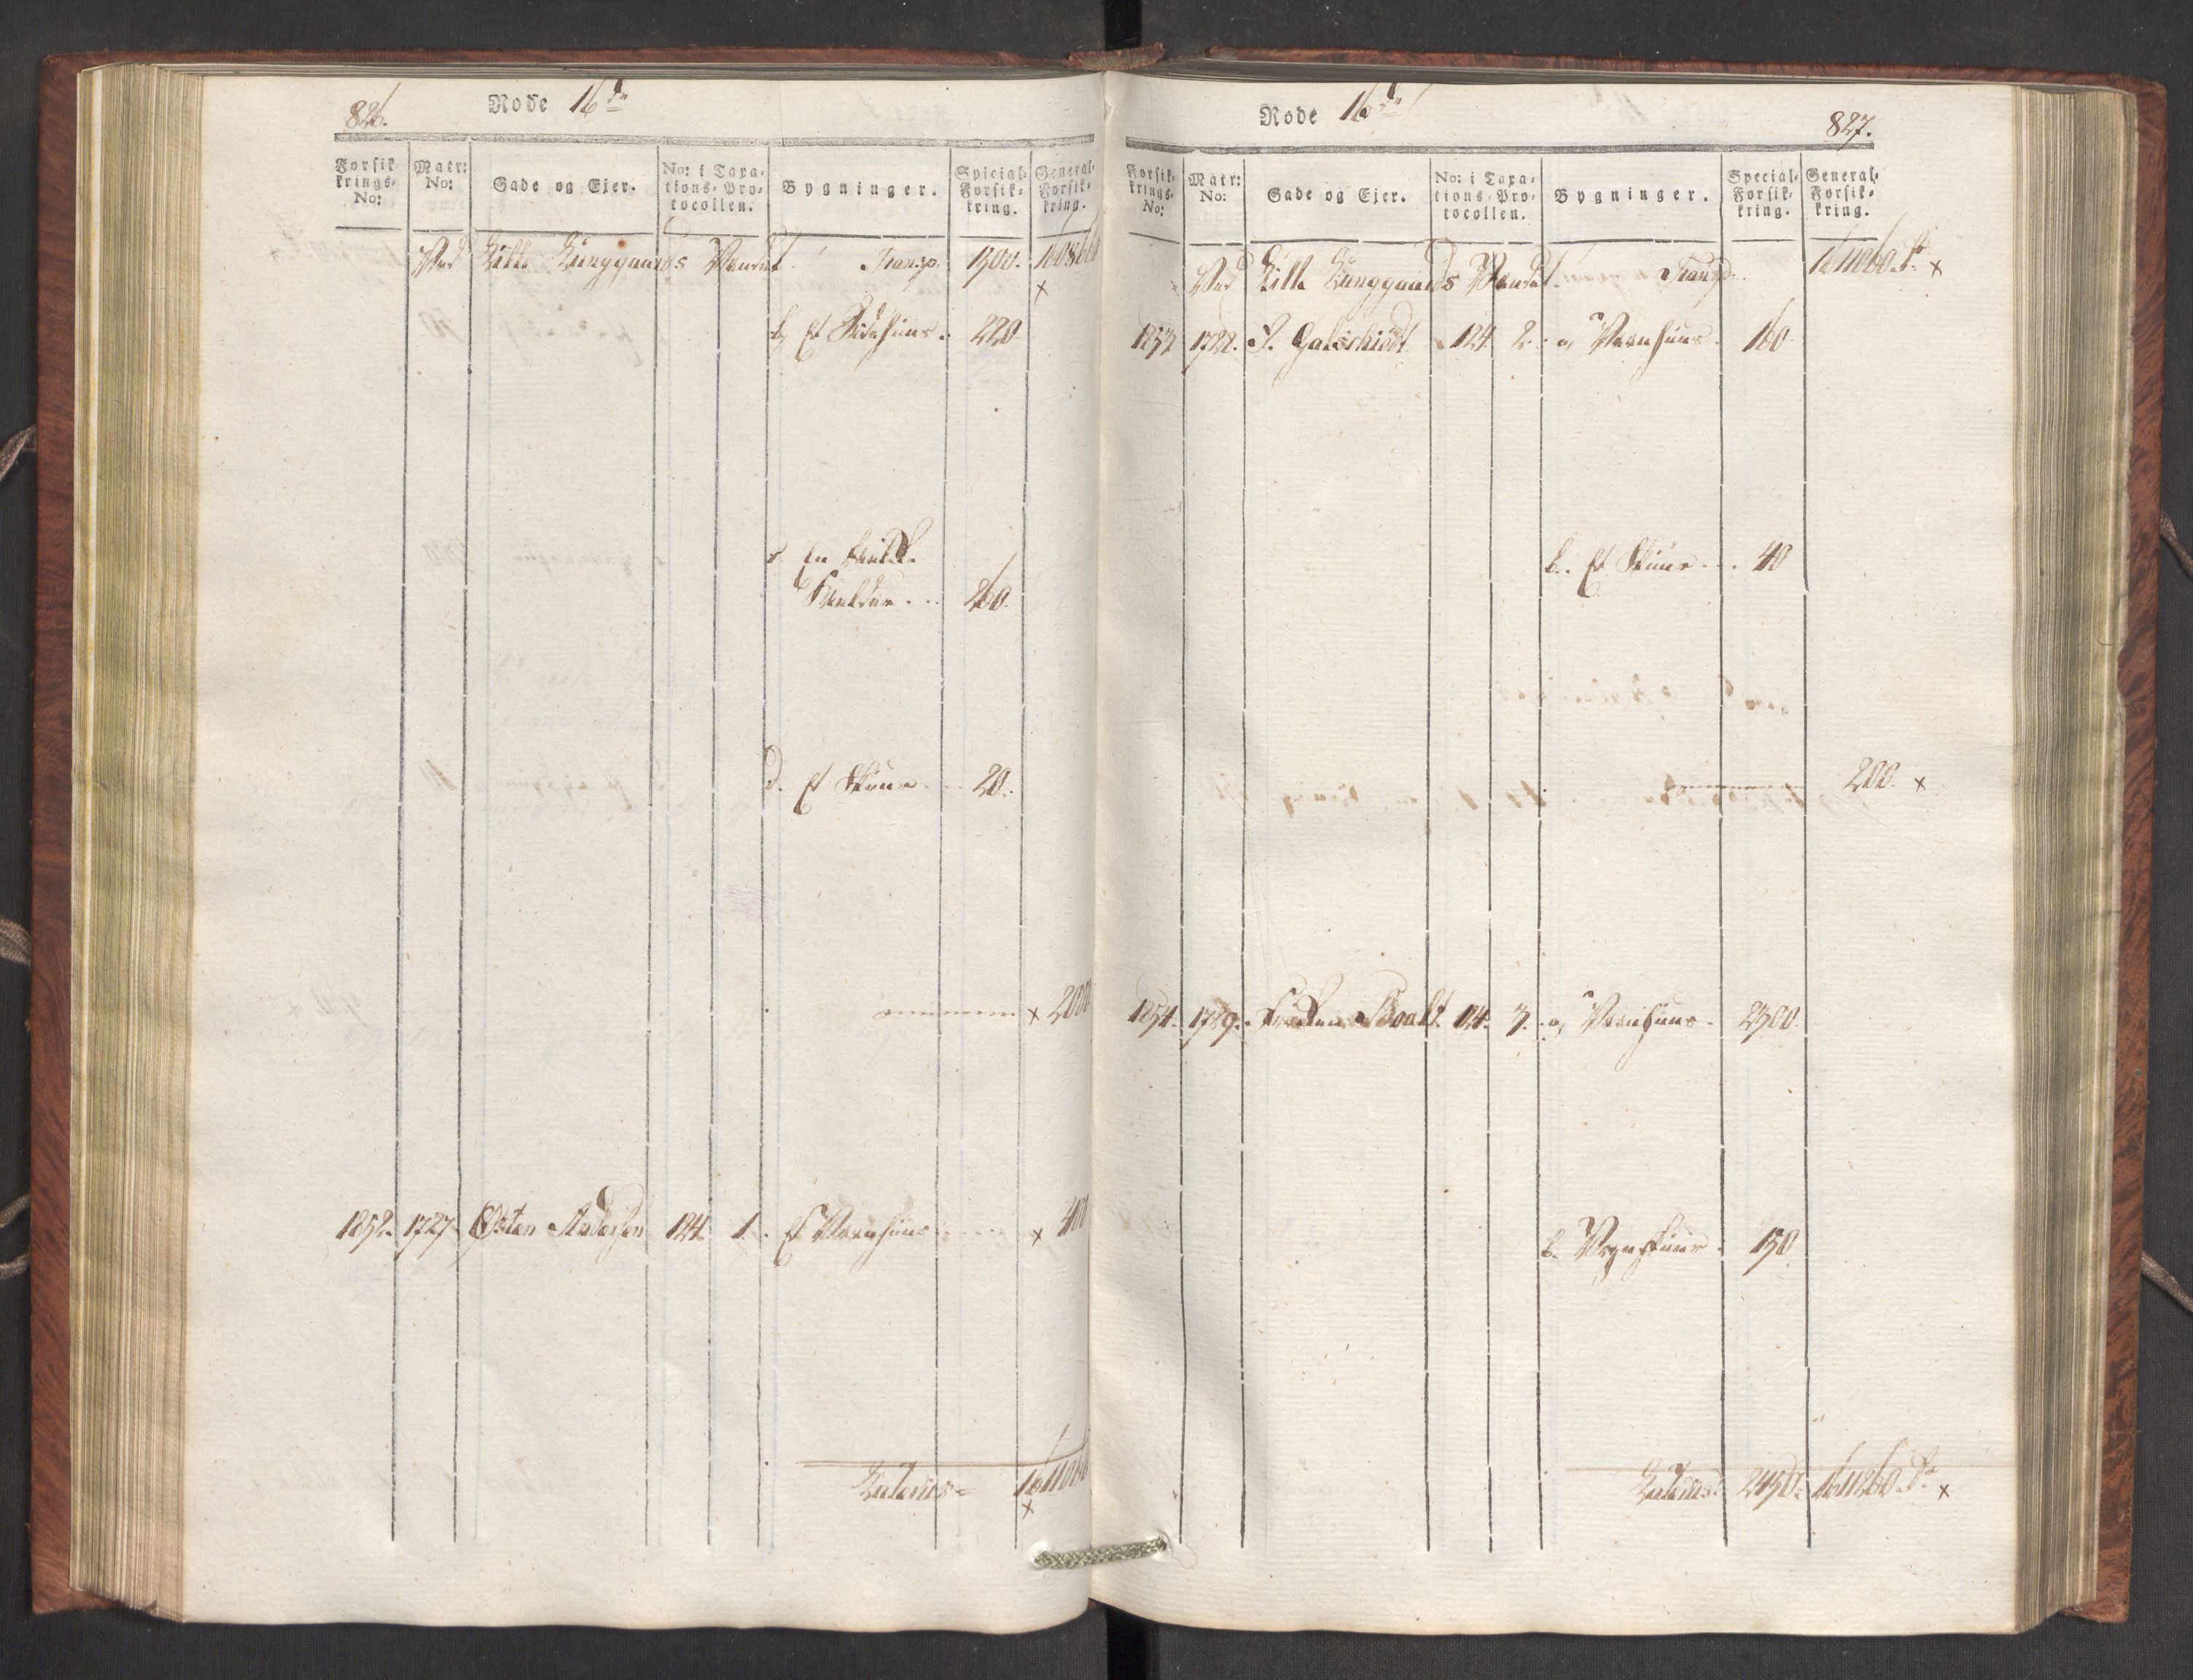 826.
Rode 16de
Forsik-
krings-
No:
Matr:
No:
Gade og Ejer.
No: i Taxa-
tions-Pro-
tocollen.
Bygninger.
Special-
Forsik-
kring.
General-
Forsik-
kring.
Ved Lille Lungegaards Vandet. Transp. 1500. 160860
x
b, Et Sidehuus. 220.
c En
Kielder... 260.
d. Et Skuur. 20.
x 2000
1852. 1727. Østen Andersen 124. 1. Et Vaanhuus x 400
Lateris 161060
x
Rode 16de
827.
Forsik-
krings-
No:
Matr:
No:
Gade og Ejer.
No: i Taxa-
tions-Pro-
tocollen.
Bygninger.
Special-
Forsik-
kring.
General-
Forsik-
kring.
Ved Lille Lungegaards Vandet. Transp. 161060 x
1853 1728. J. Galschiødt. 124. 2. a, Vaanhuus. 160
b. Et Skuur... 40
200. x
1854. 1729. 124. 3. a, Vaanhuus. 2300.
b. Vognskuur. 150
Lateris: 2450. 161260. x